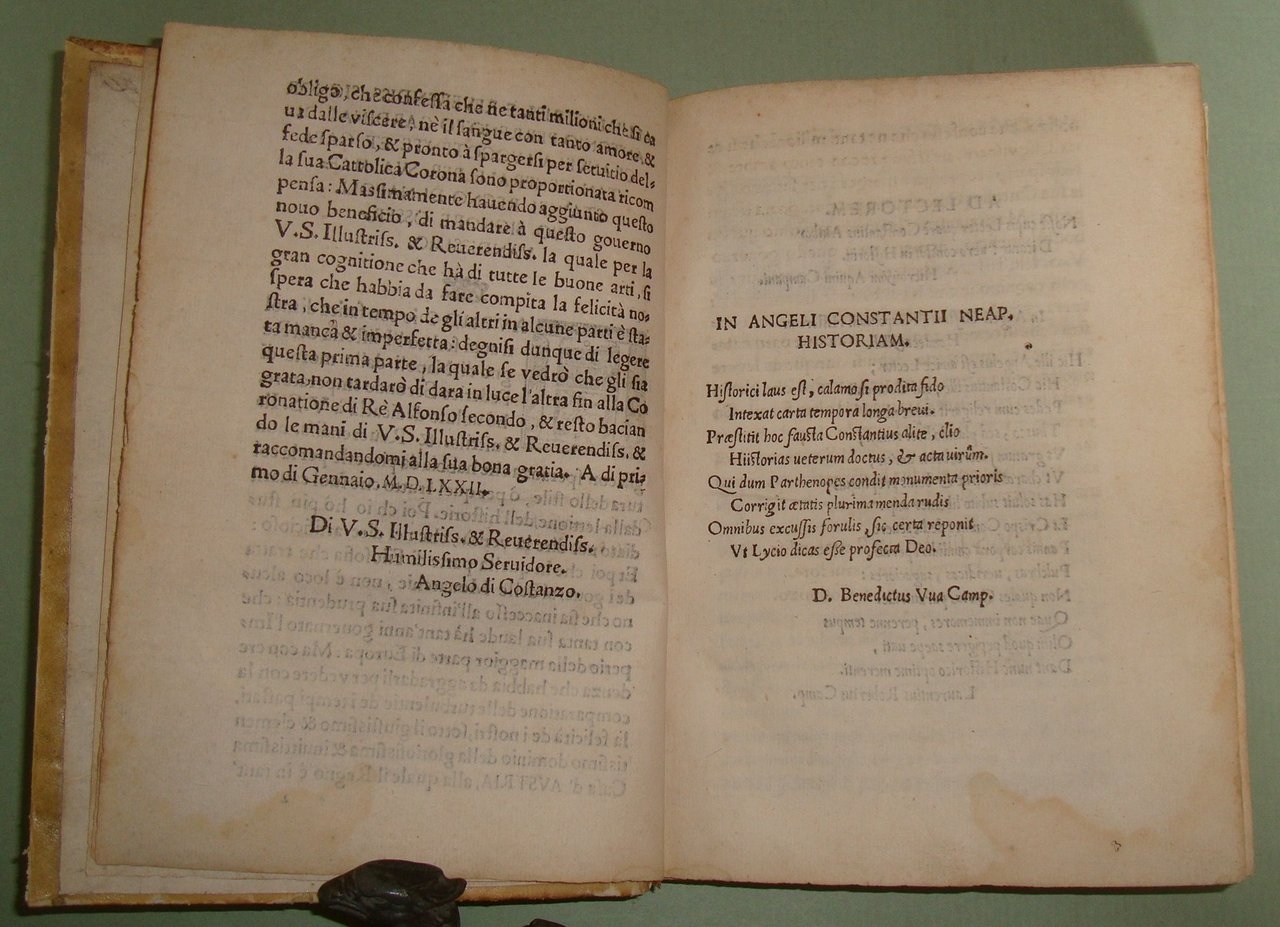 obligo, che confessa che ne tanti milioni che si ca
ua dalle viscere, nè il sangue con tanto amore, &
fede sparso, & pronto à spargersi per seruitio del-
la sua Cattolica Corona sono proportionata ricom
pensa: Massimamente hauendo aggiunto questo
nouo beneficio, di mandare à questo gouerno
V.S. Illustriss. & Reuerendiss. la quale per la
gran cognitione che hà di tutte le buone arti, si
spera che habbia da fare compita la felicità no-
stra, che in tempo de gli altri in alcune parti è sta-
ta manca & imperfetta: degnisi dunque di legere
questa prima parte, la quale se vedrò che gli sia
grata, non tardarò di dara in luce l'altra fin alla Co
ronatione di Rè Alfonso secondo, & resto bacian
do le mani di V.S. Illustriss. & Reuerendiss. &
raccomandandomi alla sua bona gratia. A di pri-
mo di Gennaio, M.D.LXXII.
Di V.S. Illustriss. & Reuerendiss.
Humilissimo Seruidore.
Angelo di Costanzo.
IN ANGELI CONSTANTII NEAP.
HISTORIAM.
Historici laus est, calamo si prodita fido
Intexat carta tempora longa breui.
Præstitit hoc fausta Constantius alite, clio
Hiistorias ueterum doctus, & acta uirûm.
Qui dum Parthenopes condit monumenta prioris
Corrigit ætatis plurima menda rudis
Omnibus excussis forulis, sic certa reponit
Vt Lycio dicas esse profecta Deo.
D. Benedictus Vua Camp.